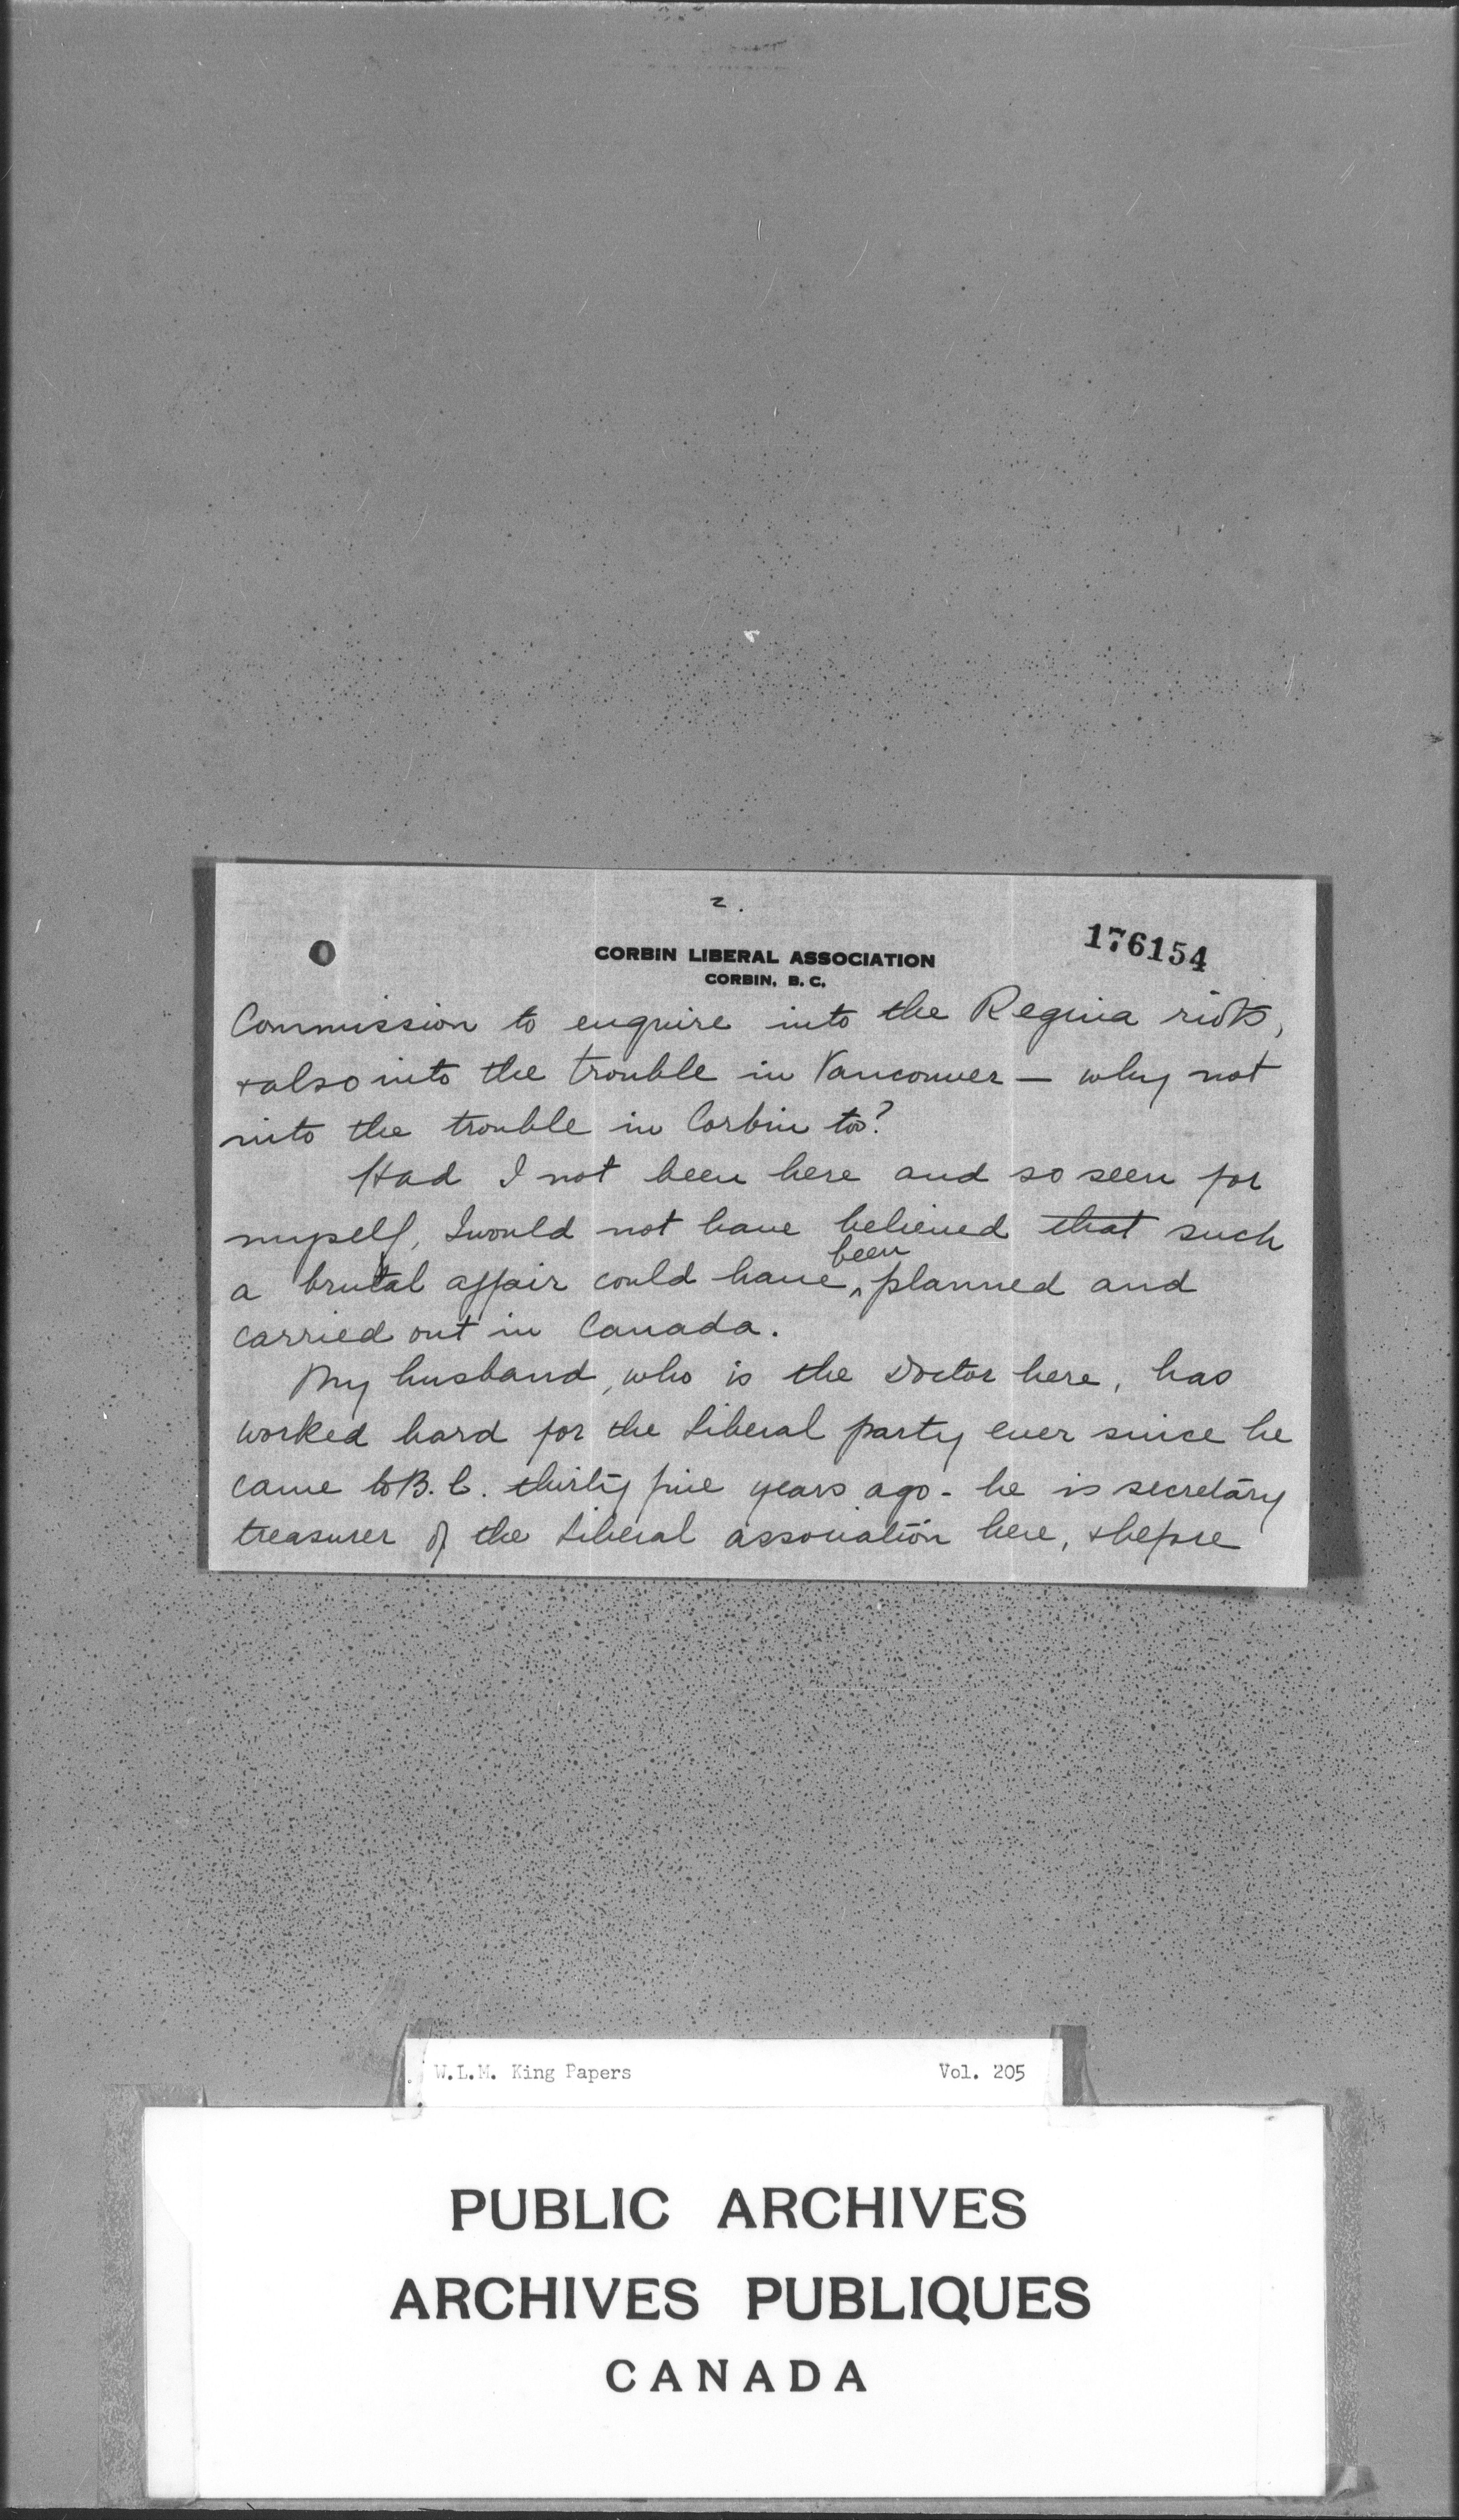 2.
176154
CORBIN LIBERAL ASSOCIATION
CORBIN, B. C.
Commission to enquire into the Regina riots,
+ also into the trouble in Vancouver — why not
into the trouble in Corbin too?
Had I not been here and so seen for
myself, I would not have believed that such
a brutal affair could have been planned and
carried out in Canada.
My husband, who is the Doctor here, has
worked hard for the Liberal party ever since he
came to B. C. thirty five years ago - he is secretary
treasurer of the Liberal association here, + before
W.L.M. King Papers Vol. 205
PUBLIC ARCHIVES
ARCHIVES PUBLIQUES
CANADA